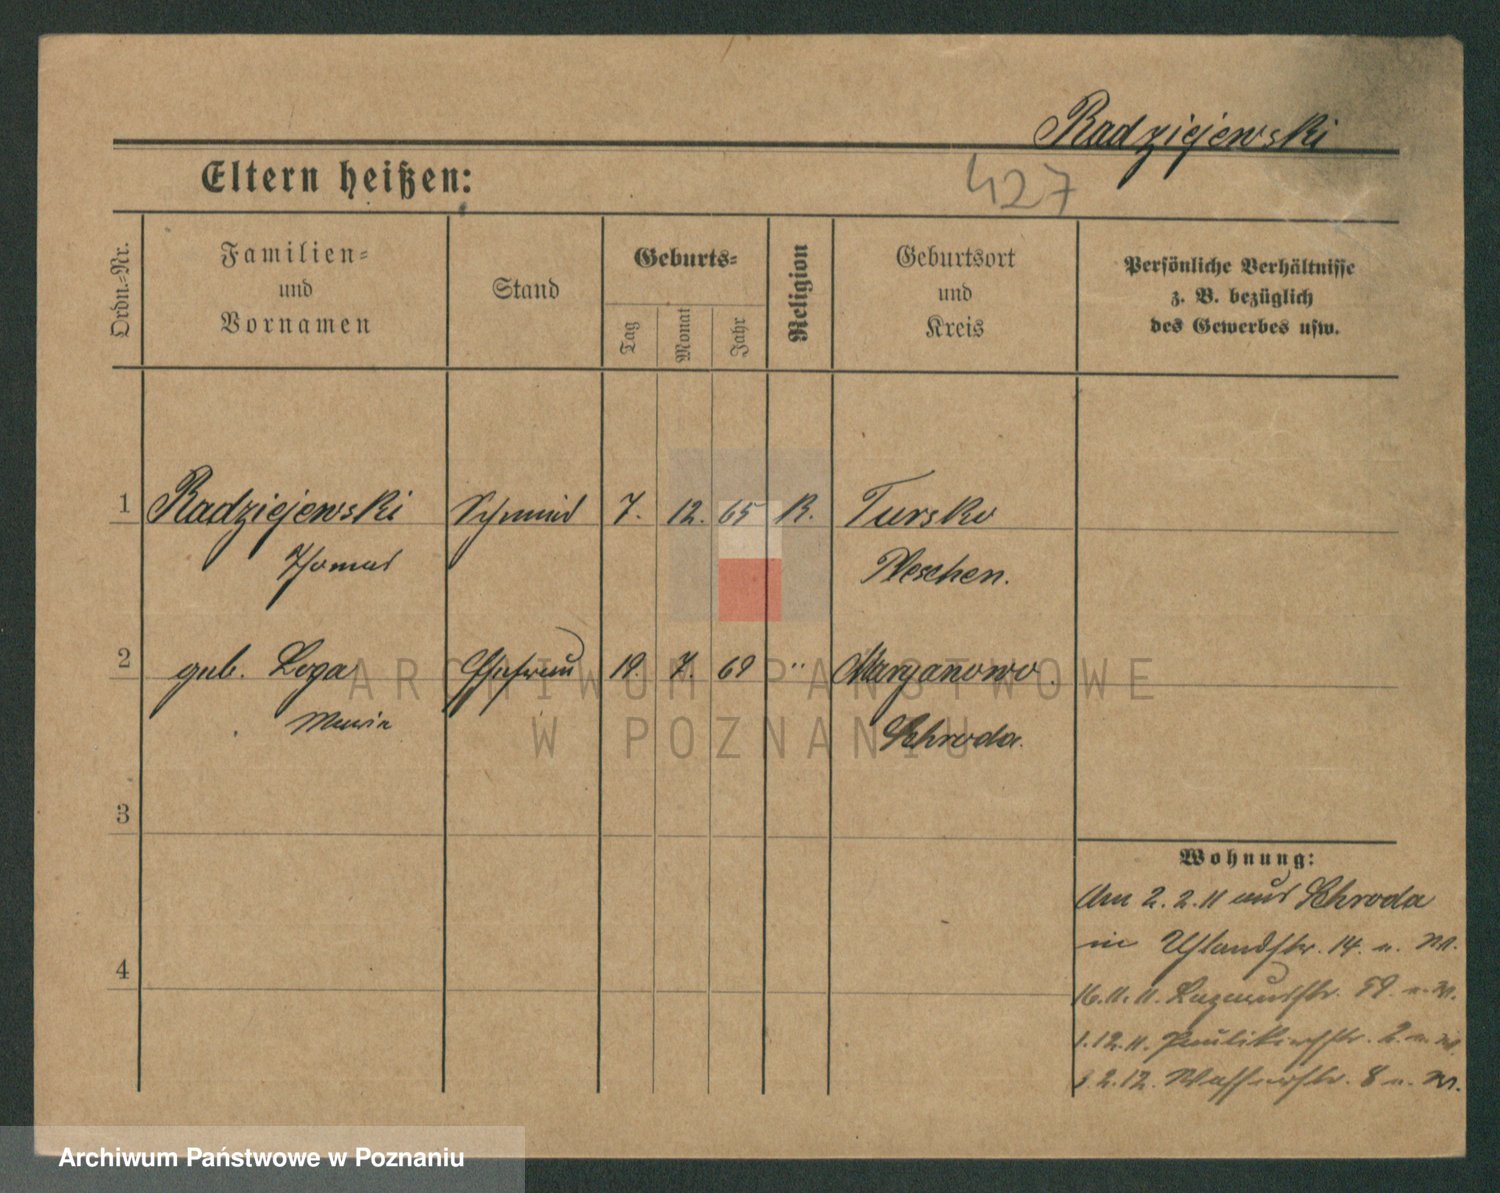 Radziejewski
427
Eltern heißen:
Ordn.-Nr.
Familien-
und
Vornamen
Stand
Geburts-
Tag
Monat
Jahr
Religion
Geburtsort
und
Kreis
Persönliche Verhältnisse
z. B. bezüglich
des Gewerbes usw.
1 Radziejewski Schmied 7. 12. 65 R. Tursko
Thomas Pleschen.
2 geb. Loga Ehefrau 19. 7. 69 " Maryanowo.
Maria Schroda.
3
4
Wohnung:
Am 2.2.11 aus Schroda
in Uhlandstr. 14. u. M.
16.11.11. 59. u. M.
1.12.11. Paulikirchstr. 2. u. M.
2.12. Wasserstr. 8 u. M.
ARCHIWUM PAŃSTWOWE
W POZNANIU
Archiwum Państwowe w Poznaniu